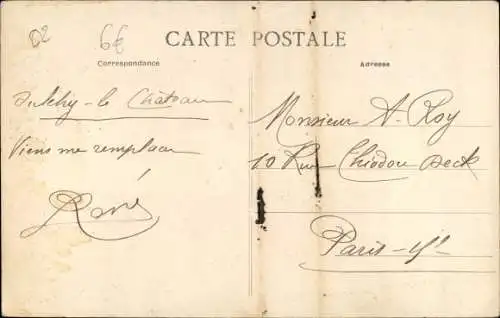 02
6€
CARTE POSTALE
Correspondance
Adresse
Oulchy-le Château
Viens me remplacer
René
Monsieur A. Roy
10 Rue Théodore Deck
Paris-15e